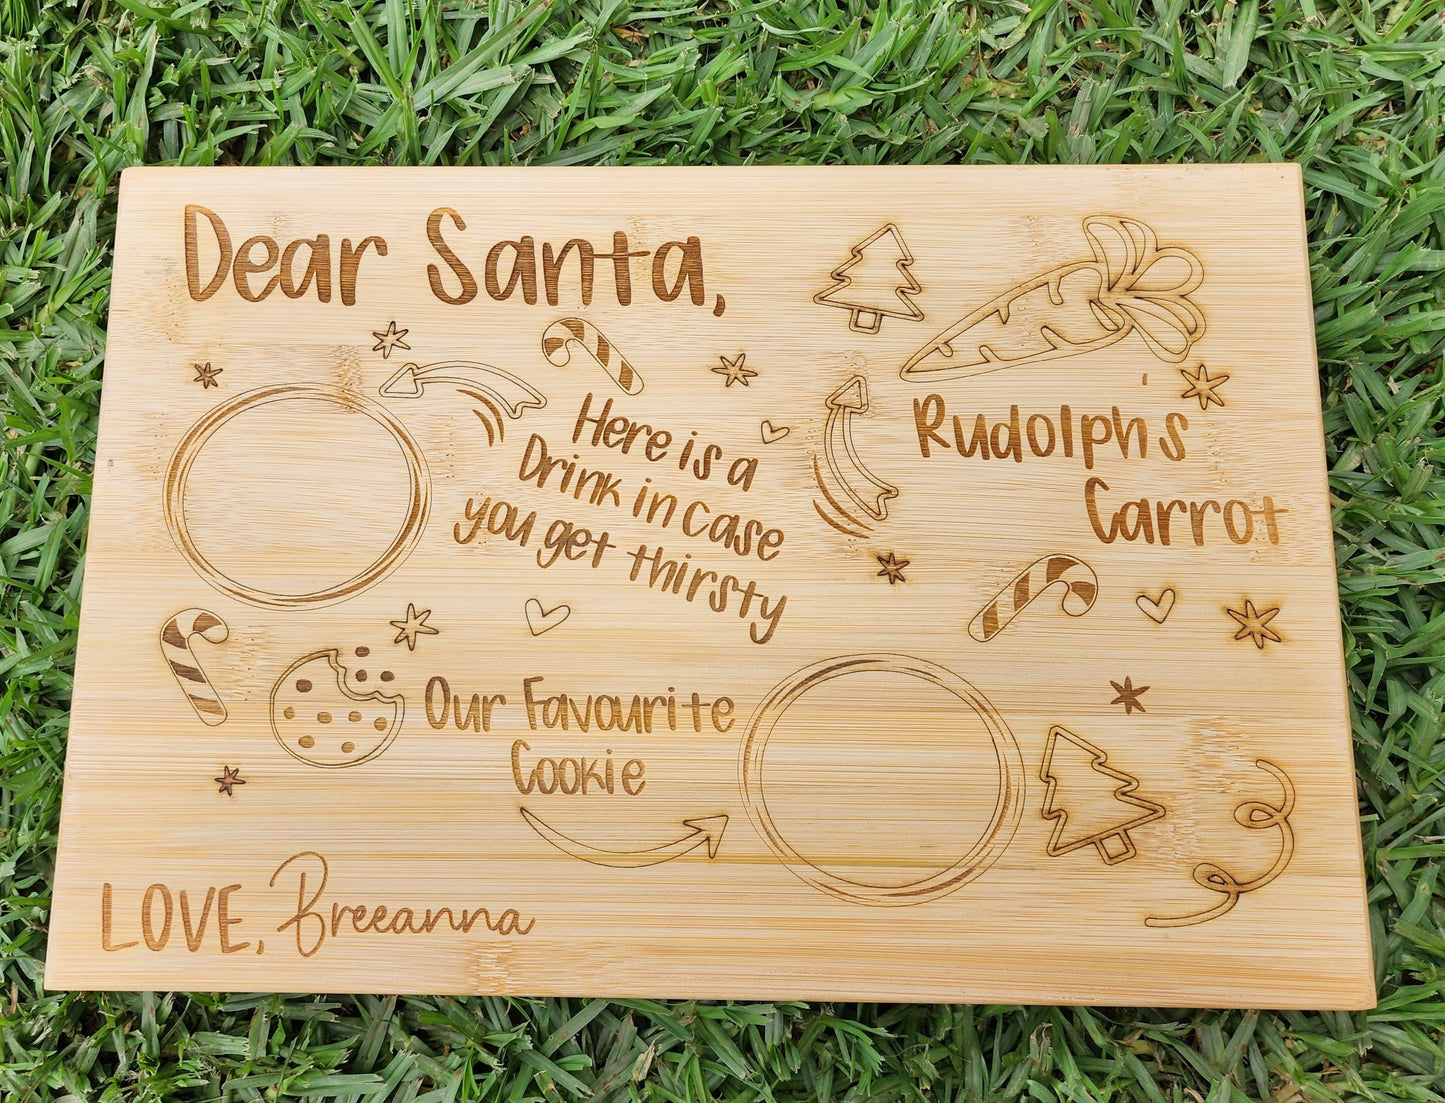 Dear Santa,
Here is a
Drink in case
you get thirsty
Rudolph's
Carrot
Our Favourite
Cookie
LOVE, Breeanna